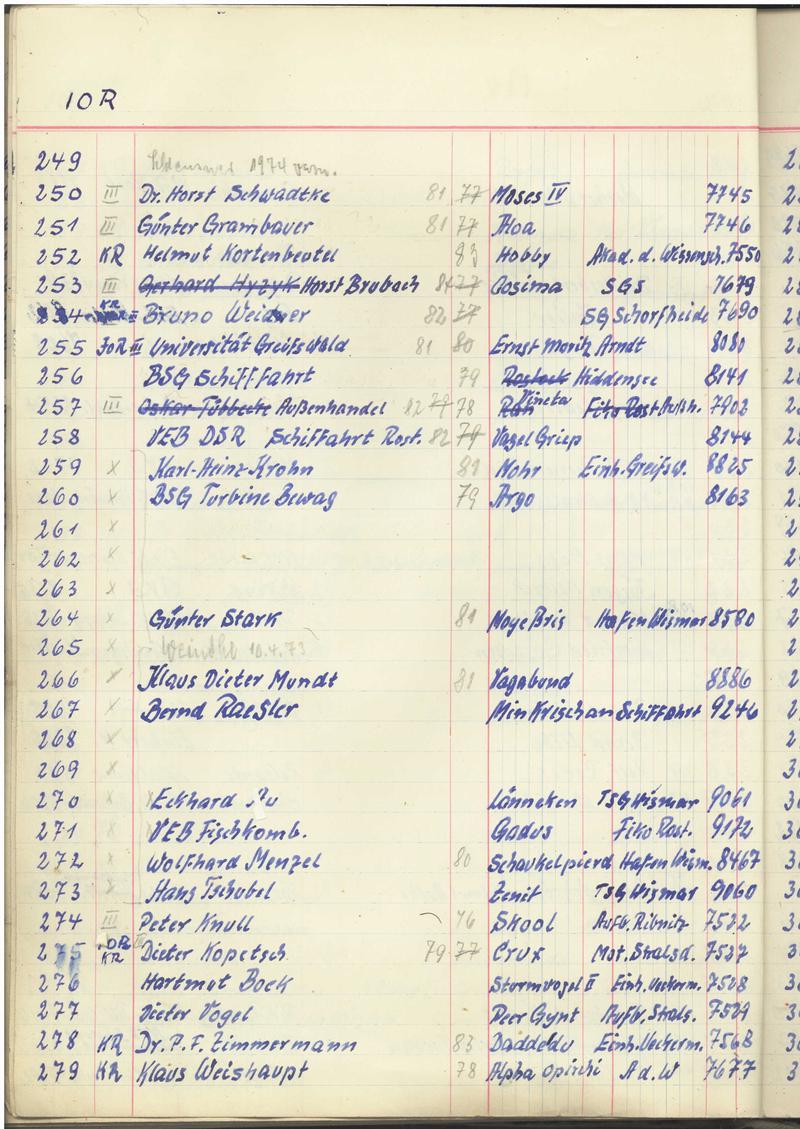 10R
249 1974
250 III Dr. Horst Schwadtke 81 77 Moses IV 7745
251 III Günter Grambauer 81 77 7746
252 KR Helmut Kortenbeutel 83 Hobby Akad. d. Wissensch. 7550
253 III Gerhard Hyzyk Horst Brubach 77 Cosima SGS 7679
Bruno Weidner 82 77 SG Schorfheide 7690
255 III Universität Greifswald 81 80 Ernst Moritz Arndt 8080
256 BSG Schiffahrt 79 Rostock Hiddensee 8141
257 III Oskar Tübbecke Außenhandel 82 79 78 Rah Vineta Fiko Rost Außh. 7902
258 VEB DSR Schiffahrt Rost. 82 79 Vogel Griep 8144
259 x Karl-Heinz Krohn 81 Mohr Einh. Greifsw. 8825
260 x BSG Turbine Bewag 79 Argo 8163
261 x
262 x
263 x
264 x Günter Stark 81 Moye Bris Hafen Wismar 8580
265 x 10.4.73
266 x Klaus Dieter Mundt 81 Vagabund 8886
267 x Bernd Raesler Min Krischan Schiffahrt 9246
268 x
269 x
270 x Eckhard Au Lönneken TSG Wismar 9061
271 x VEB Fischkomb. Gadus Fiko Rost. 9172
272 x Wolfhard Menzel 80 Schaukelpierd Hafen Wism. 8467
273 x Hans Tschubel Zenit TSG Wismar 9060
274 III Peter Knull 76 Skool Aufb. Ribnitz 7522
275 KR Dieter Kopetsch 79 77 Crux Mot. Stralsd. 7537
276 Hartmut Bock Sturmvogel II Einh. Ueckerm. 7508
277 Dieter Vogel Peer Gynt Aufb. Strals. 7529
278 KR Dr. P. F. Zimmermann 83 Daddeldu Einh. Ueckerm. 7568
279 KR Klaus Weishaupt 78 Alpha A d. W 7677